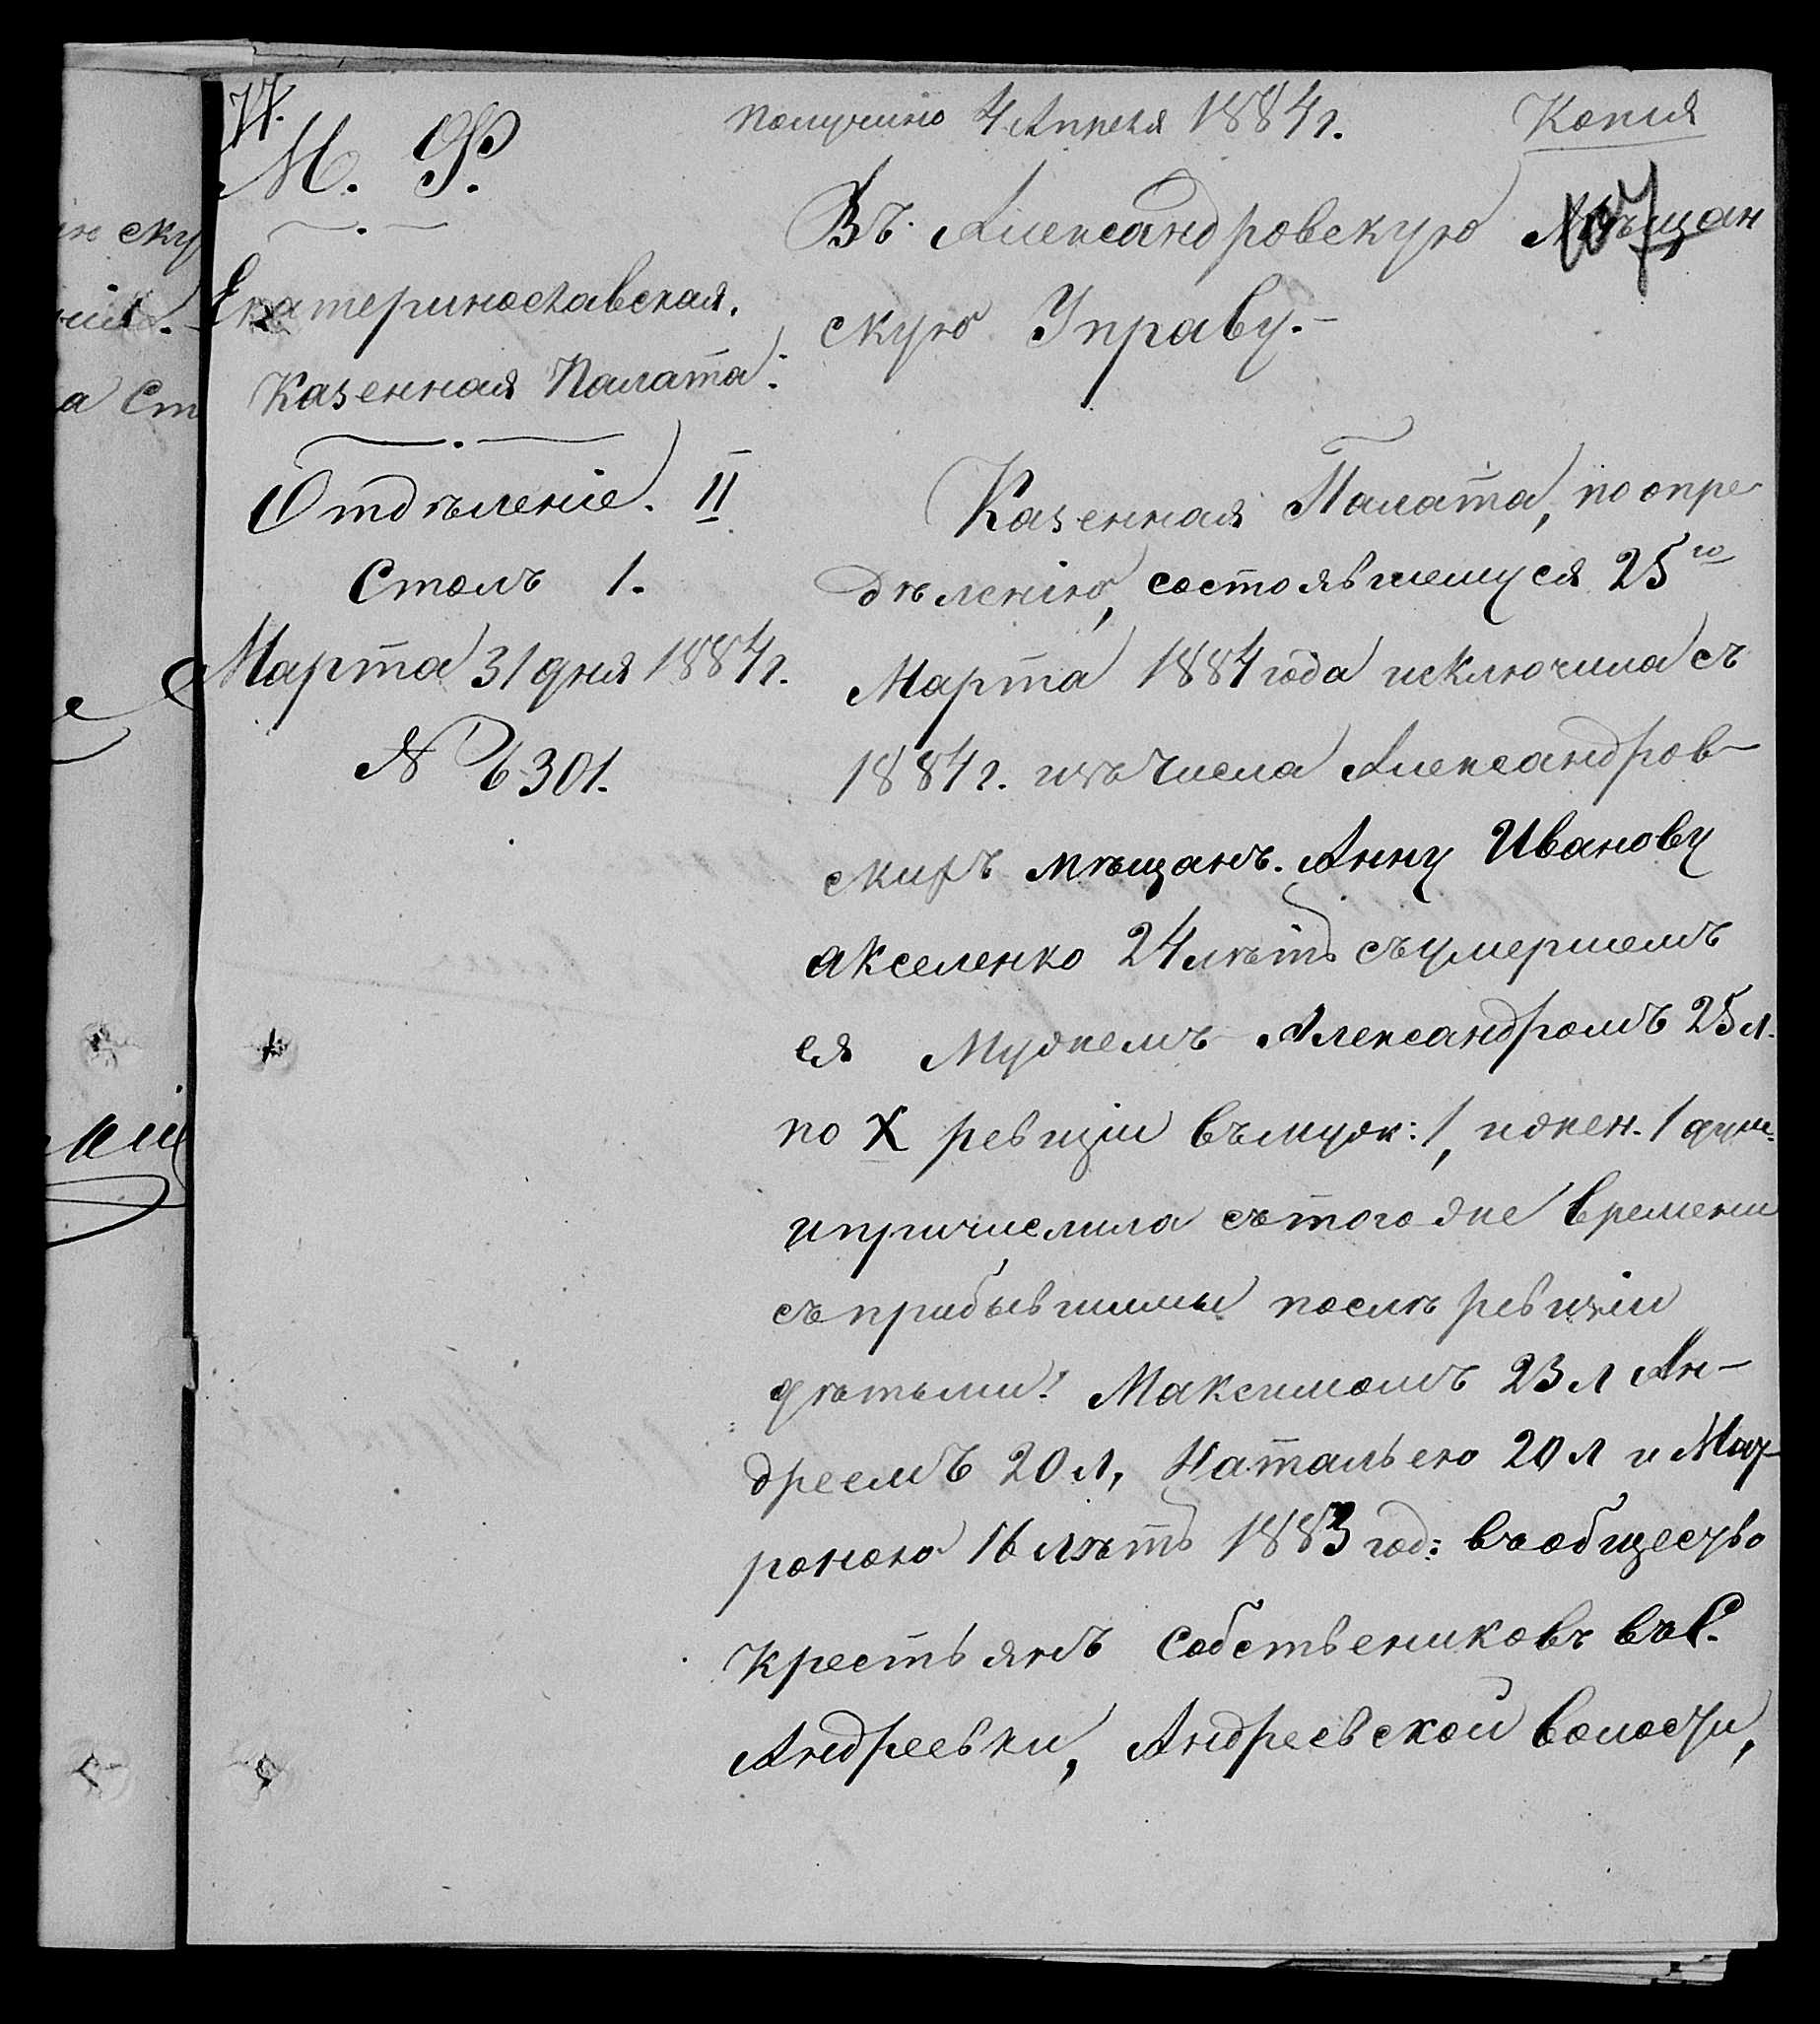 получено 4 Апреля 1884 г.
Копия
107
М. Ф.
Екатеринославская.
Казенная Палата.
Отдѣленіе. II
Столъ 1.
Марта 31 дня 1884 г.
№ 6301.
Въ Александровскую Мѣщан
скую Управу.-
Казенная Палата, по опре
дѣленію, состоявшемуся 25го
Марта 1884 года исключила съ
1884 г. изъ числа Александров-
скихъ мѣщанъ. Анну Иванову
Акселенко 24 лѣтъ съ умершемъ
ея Мужемъ Александромъ 25 л.
по X ревизіи въ муж: 1, и жен. 1 душ.
и причислила съ того же времени
съ прибывшими послѣ ревизіи
дѣтьми: Максимомъ 23 л Ан-
дреемъ 20 л, Натальею 20 л и Мат-
роною 16 лѣтъ 1883 год: въ общество
крестьянъ собствениковъ въ С.
Андреевки, Андреевской волости,